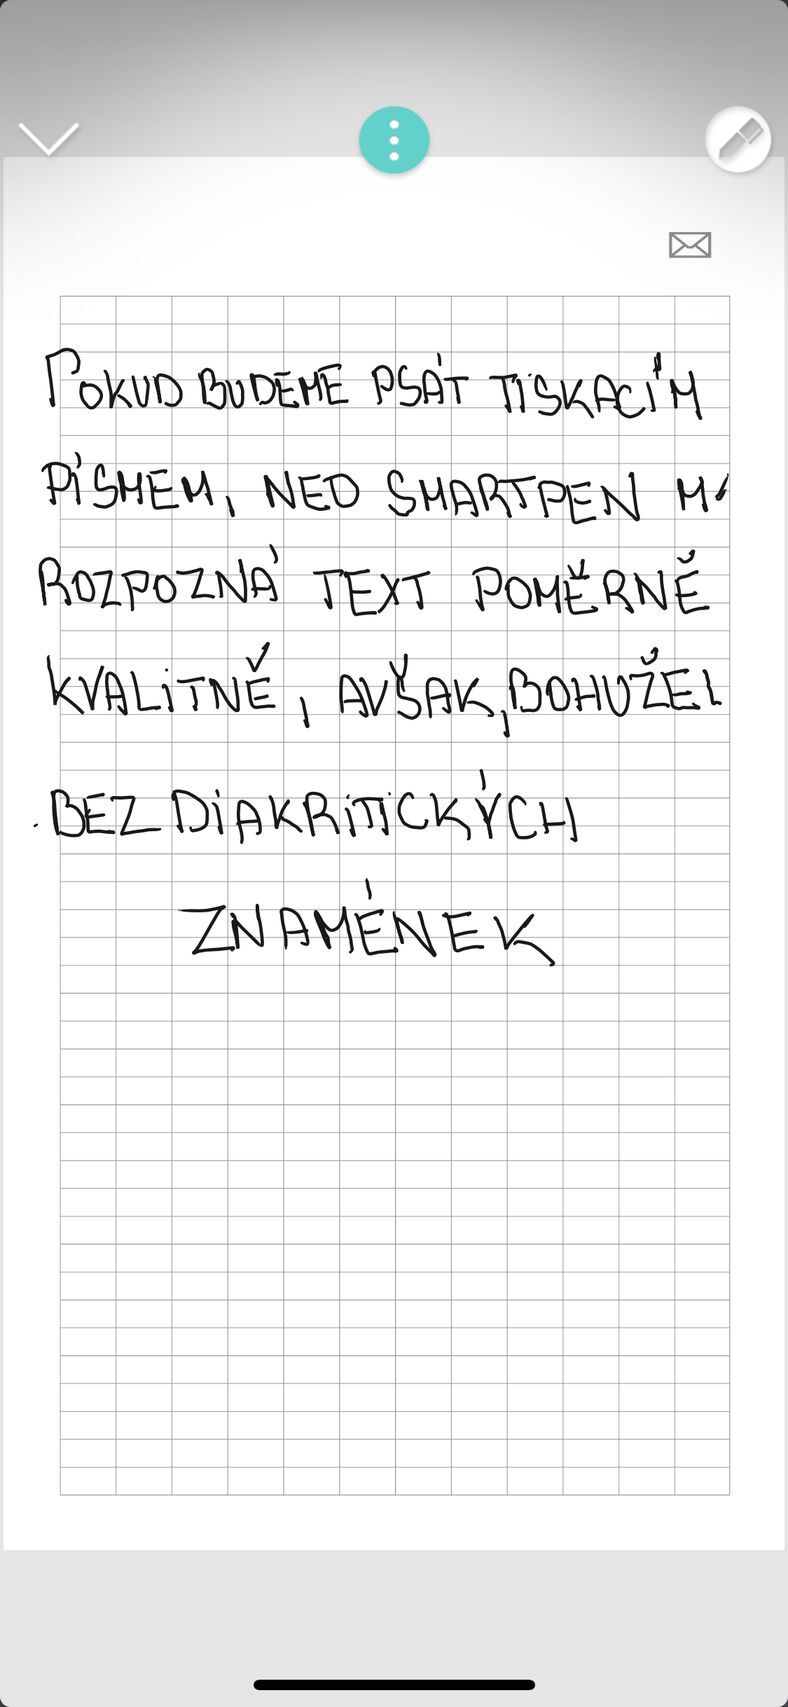 POKUD BUDEME PSÁT TISKACÍM
PÍSMEM, NEO SMARTPEN M1
ROZPOZNÁ TEXT POMĚRNĚ
KVALITNĚ, AVŠAK, BOHUŽEL
BEZ DIAKRITICKÝCH
ZNAMÉNEK